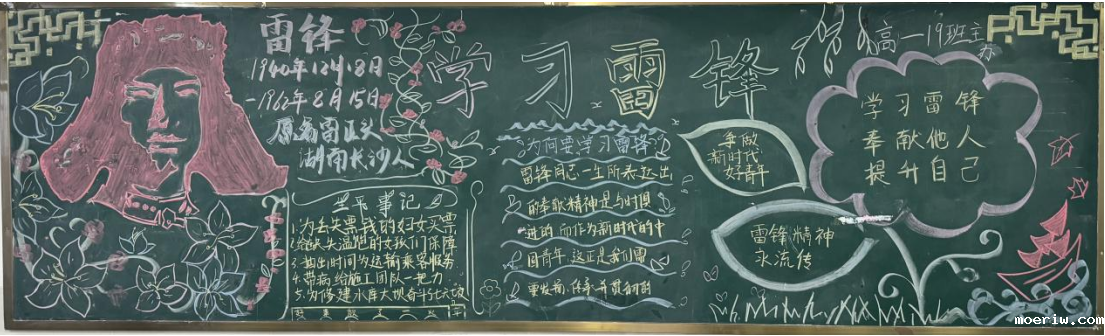 雷锋
1940年12月18日
-1962年8月15日
原名雷正兴
湖南长沙人
生平事记
1.为丢失票的妇女买票
3.抽出时间为运输乘客服务
4.带病给施工团队一把力
5.为修建水库大坝奋斗
学习雷锋
为何要学习雷锋
雷锋同志一生所表达出
的奉献精神是与时俱
进的 而作为新时代的中
国青年 这正是我们需
要发扬、传承
争做
新时代
好青年
雷锋精神
永流传
高一19班主
办
学习雷锋
奉献他人
提升自己
moeriw.com